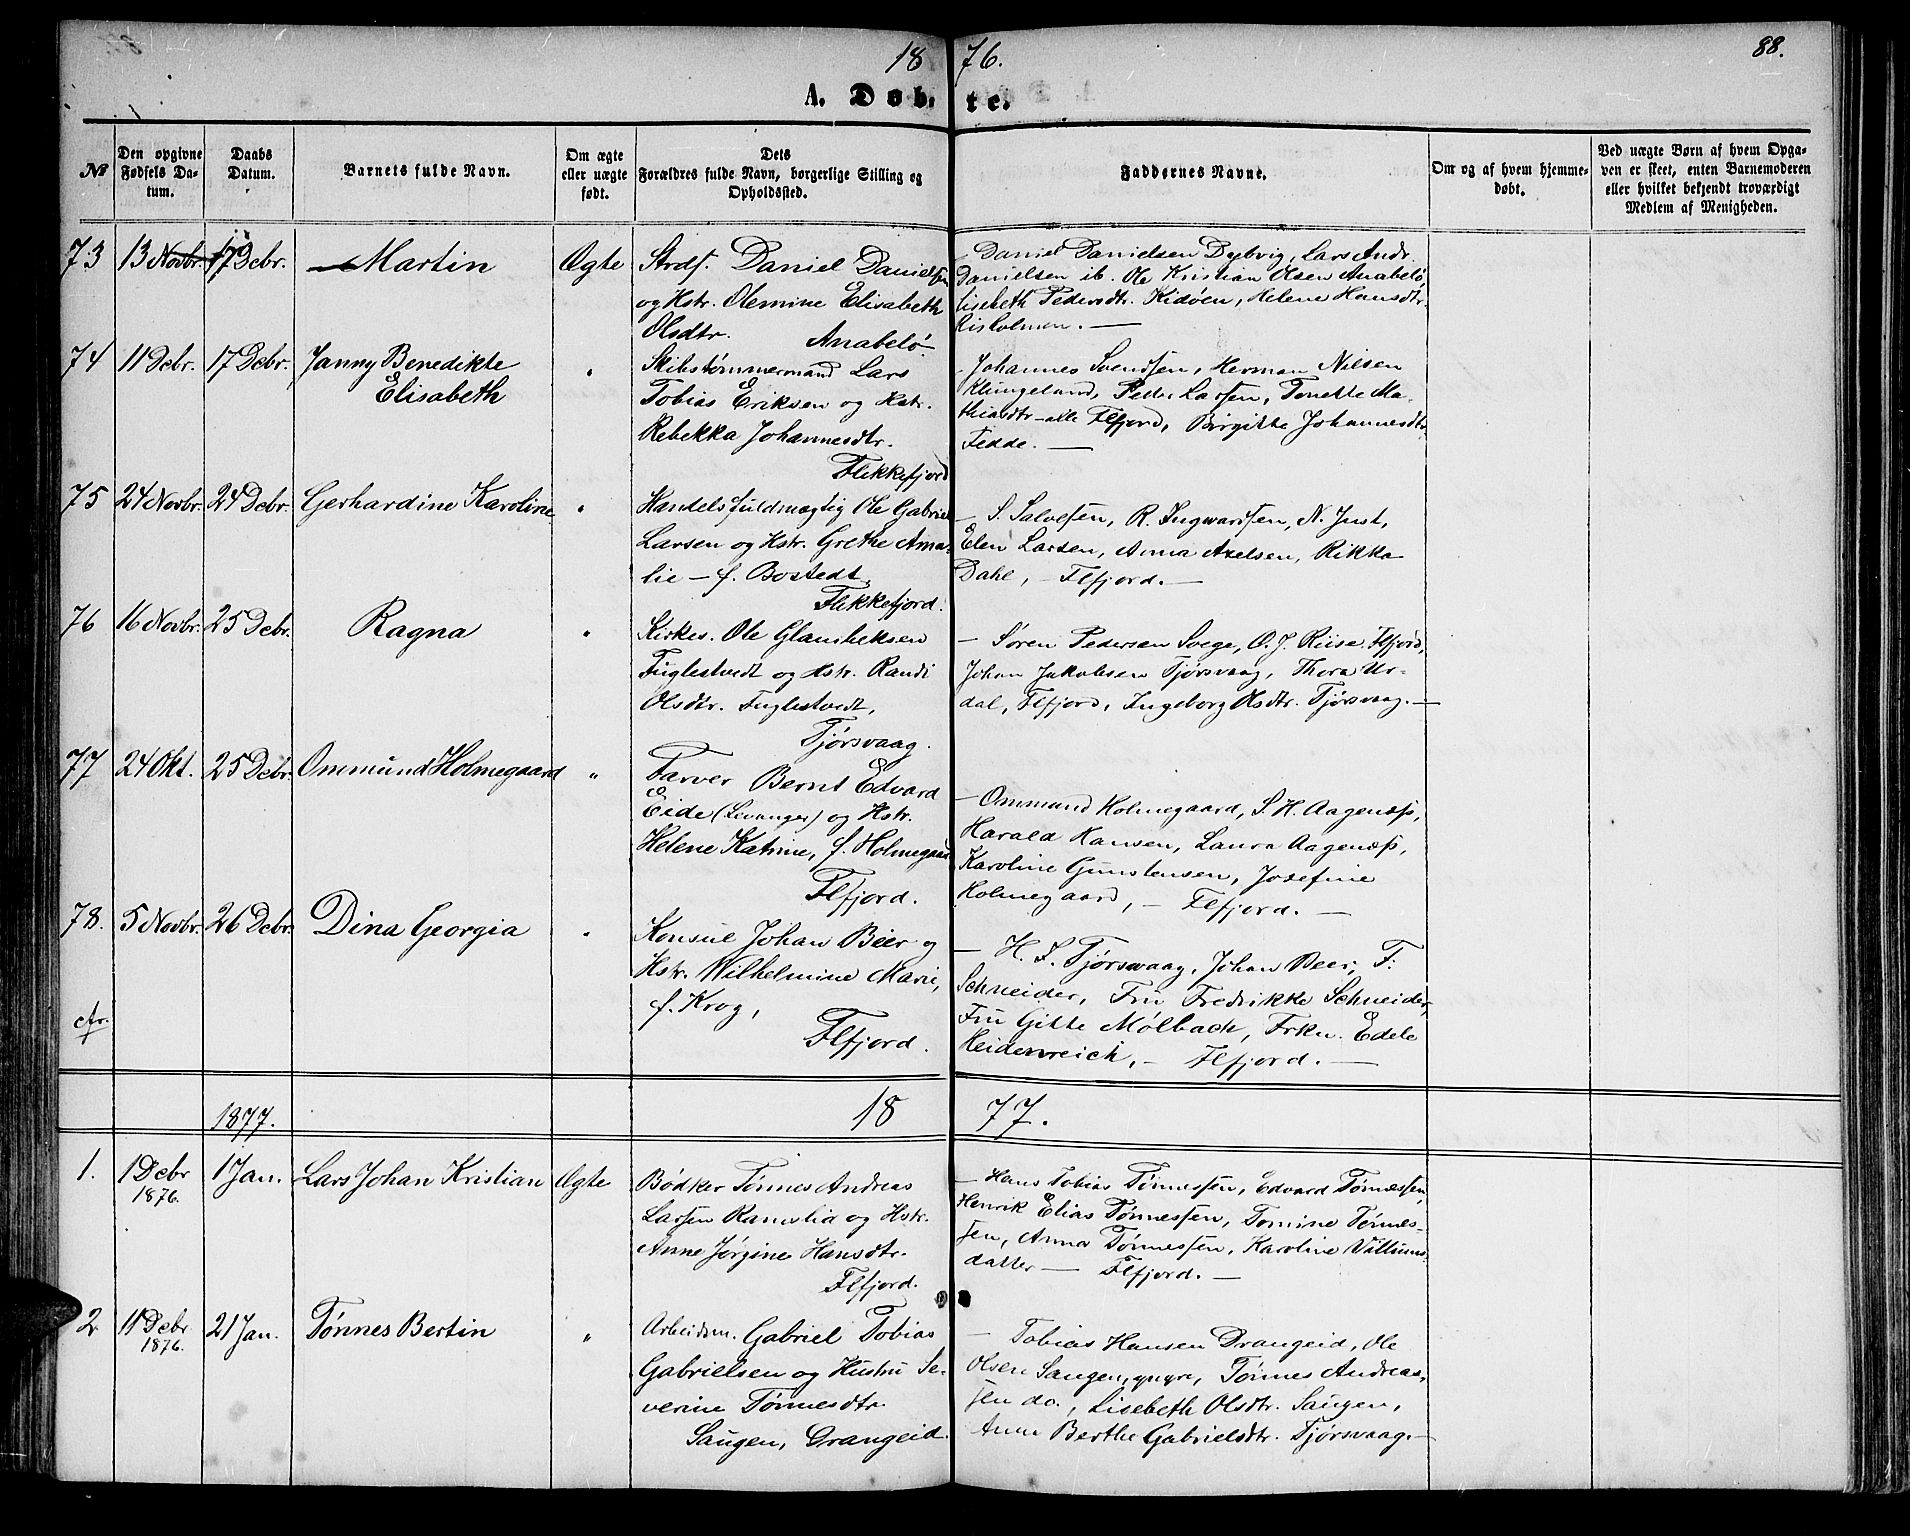 18 76. 88.
A. Døb- te.
No
Den opgivne Fødsels Datum.
Daabs Datum.
Barnets fulde Navn.
Om ægte eller uægte født.
Dets Forældres fulde Navn, borgerlige Stilling og Opholdssted.
Faddernes Navne.
Om og af hvem hjemmedøbt.
Ved uægte Børn af hvem Opgaven er skeet, enten Barnemoderen eller hvilket bekjendt troværdigt Medlem af Menigheden.
73 13 Novbr. 17 Debr. Martin Ægte
Strdf. Daniel Danielsen
og Hstr. Olemine Elisabeth
Olsdtr. Anabelø.
— Daniel Danielsen Dybvig, Lars Andr.
Danielsen ib. Ole Kristian Olsen Anabelø,
Lisebeth Pedersdtr. Kidøen, Helene Hansdtr.
Risholmen. —
74 11 Debr. 17 Debr. Janny Benedikte
Elisabeth "
Skibstømmermand Lars
Tobias Eriksen og Hstr.
Rebekka Johannesdtr.
Flekkefjord
— Johannes Svendsen, Herman Nilsen
Klungeland, Peder Larsen, Tonette Ma-
thiasdtr — alle Flfjord, Birgitte Johannesdtr.
Fedde. —
75 24 Novbr. 24 Debr. Gerhardine Karoline "
Handelsfuldmægtig Ole Gabriel
Larsen og Hstr. Grethe Ama-
lie — f. Bostedt,
Flekkefjord.
— S. Salvesen, R. Ingwardsen, N. Just,
Elen Larsen, Anna Axelsen, Rikka
Dahl, — Flfjord. —
76 16 Novbr. 25 Debr. Ragna "
Kirkes. Ole Glausheksen
Fuglestvedt og Hstr. Randi
Olsdtr. Fuglestvedt,
Tjørsvaag.
— Søren Pedersen Svege, O. J. Riise Flfjord,
Johan Jakobsen Tjørsvaag, Thora Ur-
dal, Flfjord, Ingeborg Olsdtr. Tjørsvaag. —
77 24 Okt. 25 Debr. Ommund Holmegaard "
Farver Bernt Edvard
Eide (Levanger) og Hstr.
Helene Katrine, f. Holmegaard
Flfjord.
— Ommund Holmegaard, S. H. Aagenæss,
Harald Hansen, Laura Aagenæss,
Karoline Gunstensen, Josefine
Holmegaard, — Flfjord. —
78. 5 Novbr. 26 Debr. Dina Georgia "
Konsul Johan Beer og
Hstr. Wilhelmine Marie,
f. Krog,
Flfjord.
— H. S. Tjørswaag, Johan Beer, F.
Schneider, Fru Fredrikke Schneider,
Fru Gitte Mølback, Frkn. Edele
Heidenreich, — Flfjord. —
1877. 18 77.
1. 1 Debr 1876. 1 Jan. Lars Johan Kristian Ægte
Bødker Tønnes Andreas
Larsen Ramslid og Hstr.
Anne Jørgine Hansdtr.
Flfjord.
— Hans Tobias Tønnessen, Edvard Tønnessen,
Henrik Elias Tønnessen, Tomine Tønnes-
sen, Anna Tønnessen, Karoline Villums-
datter — Flfjord. —
2 11 Debr 1876. 21 Jan. Tønnes Bertin "
Arbeidsm. Gabriel Tobias
Gabrielsen og Hustru Se-
verine Tønnesdtr.
Saugen, Drangeid.
— Tobias Hansen Drangeid, Ole
Olsen Saugen, yngre, Tønnes Andreas-
sen do., Lisebeth Olsdtr. Saugen,
Anne Berthe Gabrielsdtr. Tjørsvaag. —